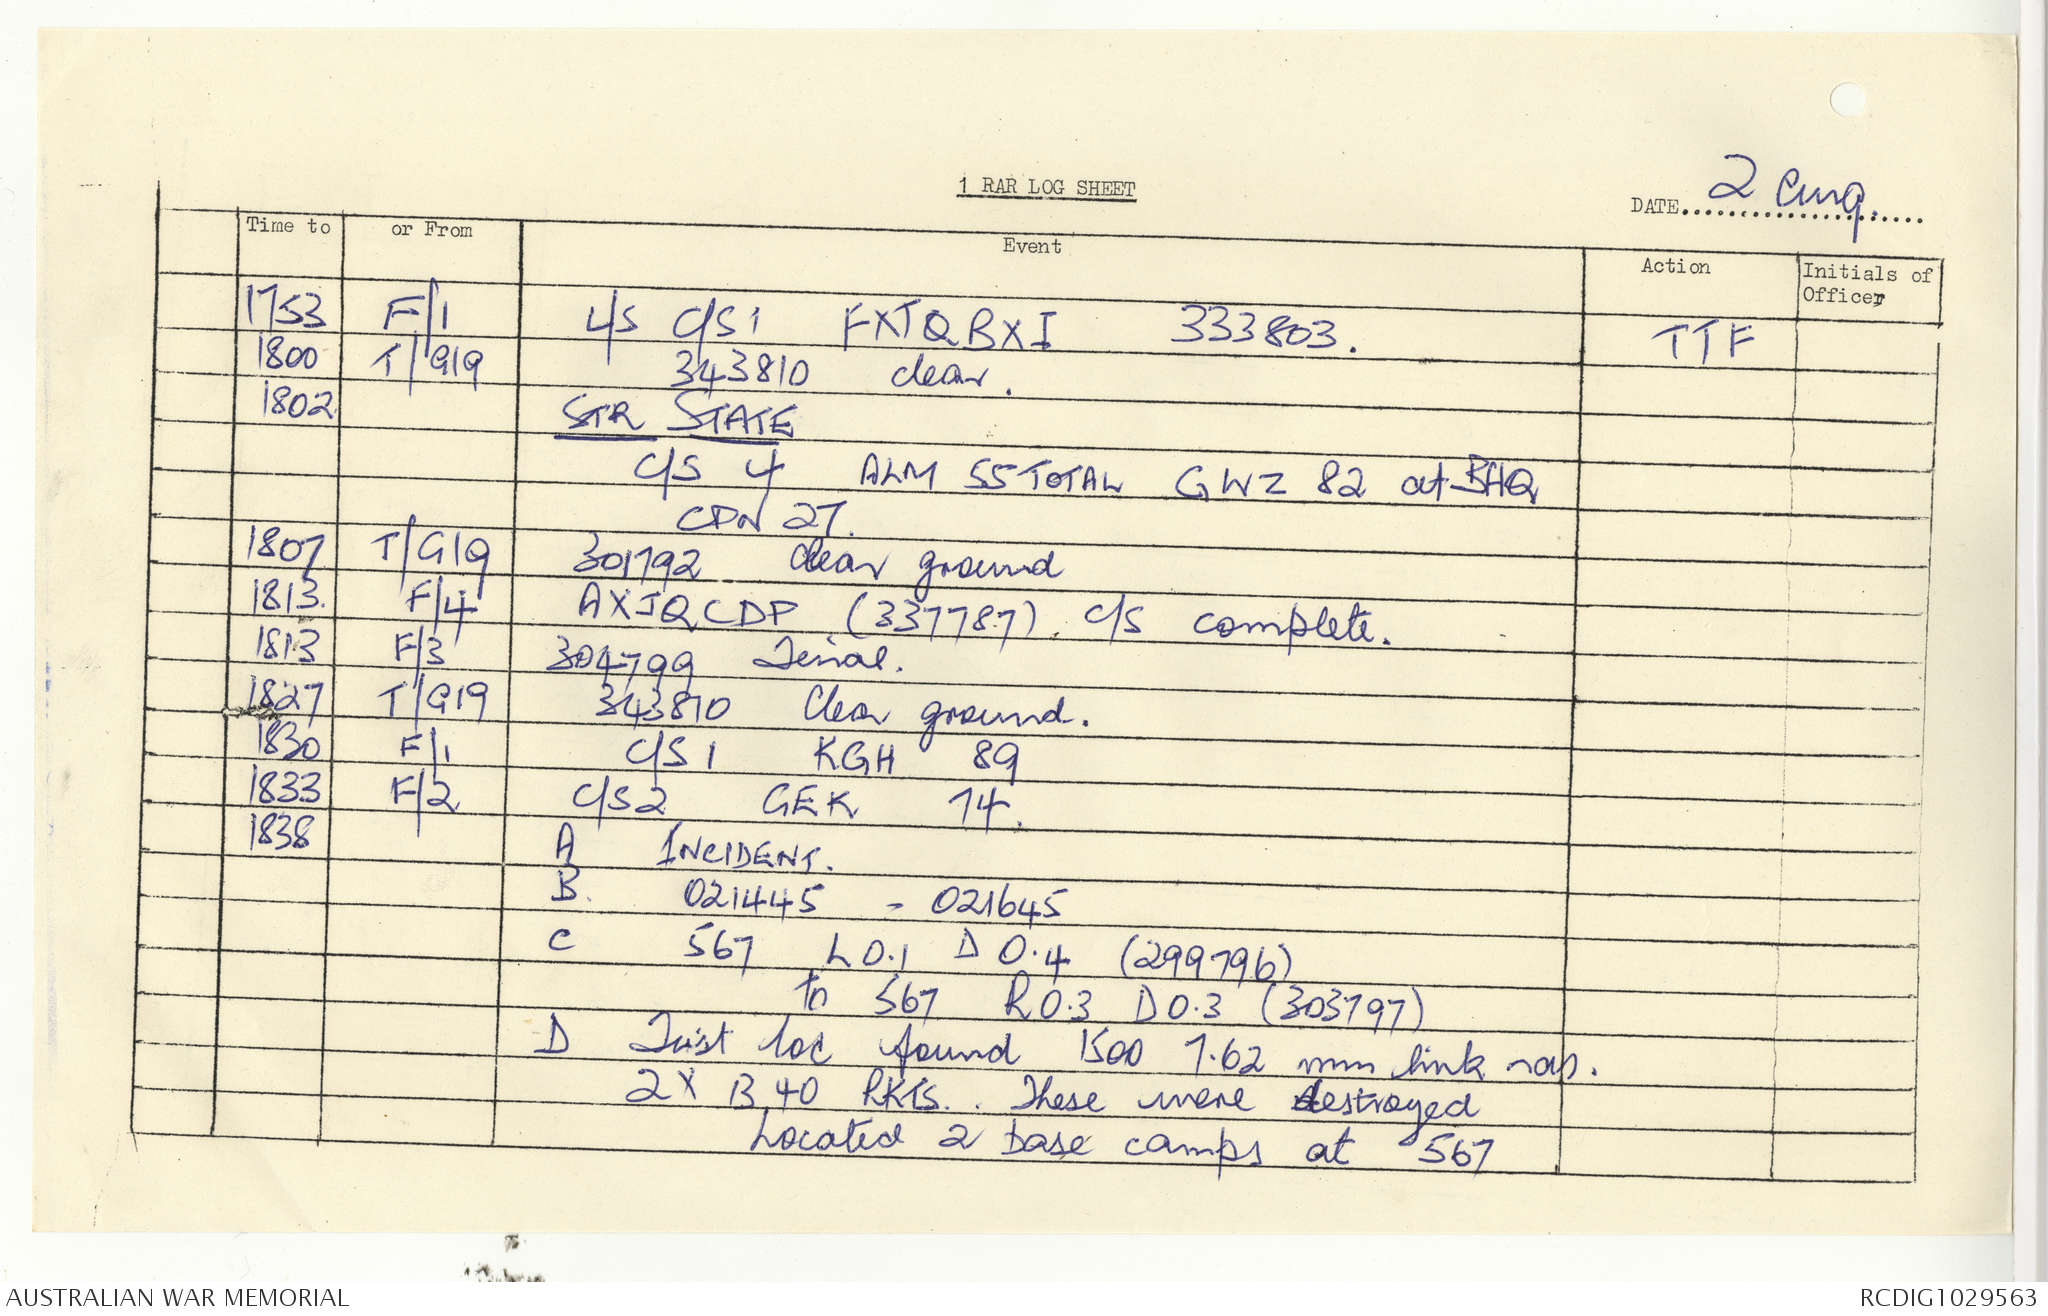 1 RAR LOG SHEET
DATE 2 Aug.
Time to or From Event Action Initials of Officer
1753 F/1 L/S C/S 1 FXTQBXI 333803. TTF
1800 T/G19 343810 clear.
1802 STR STATE
C/S 4 ALM 55 TOTAL GWZ 82 at BHQ
CDN 27.
1807 T/G19 301792 clear ground
1813. F/4 AXIQCDP (337787). C/S complete.
1813 F/3 304799
1827 T/G19 343810 clear ground.
1830 F/1 C/S 1 KGH 89
1833 F/2 C/S 2 GEK 74.
1838 A INCIDENT.
B. 021445 - 021645
C 567 L 0.1 D 0.4 (299796)
to 567 R 0.3 D 0.3 (303797)
D First loc found 1500 7.62 mm link rds.
2 X B 40 RKTS. These were destroyed
Located 2 base camps at 567
AUSTRALIAN WAR MEMORIAL RCDIG1029563